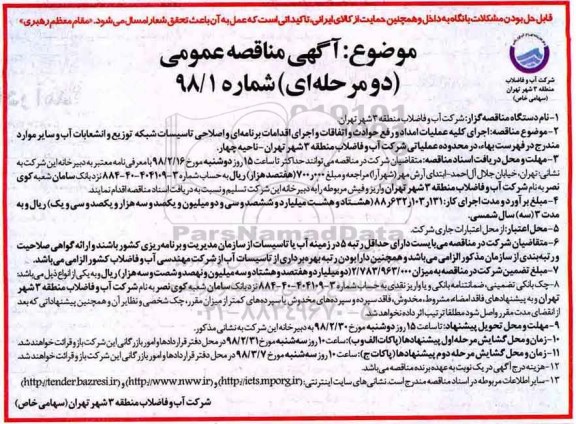 قابل حل بودن مشکلات با نگاه به داخل و همچنین حمایت از کالای ایرانی، تاکیداتی است که عمل به آن باعث تحقق شعار امسال می‌شود. «مقام معظم رهبری»
موضوع: آگهی مناقصه عمومی
(دو مرحله‌ای) شماره ۹۸/۱
شرکت آب و فاضلاب
منطقه ۳ شهر تهران
(سهامی خاص)
۱- نام دستگاه مناقصه گزار: شرکت آب و فاضلاب منطقه ۳ شهر تهران.
۲- موضوع مناقصه: اجرای کلیه عملیات امداد و رفع حوادث و اتفاقات و اجرای اقدامات برنامه‌ای و اصلاحی تاسیسات شبکه توزیع و انشعابات آب و سایر موارد
مندرج در فهرست بهاء، در محدوده عملیاتی شرکت آب و فاضلاب منطقه ۳ شهر تهران - ناحیه چهار.
۳- مهلت و محل دریافت اسناد مناقصه: متقاضیان شرکت در مناقصه می‌توانند حداکثر تا ساعت ۱۵ روز دوشنبه مورخ ۹۸/۲/۱۶ با معرفی نامه معتبر به دبیرخانه این شرکت به
نشانی: تهران، خیابان جلال آل احمد- ابتدای آرش مهر (شهرآرا) مراجعه و مبلغ ۷۰۰/۰۰۰ (هفتصد هزار) ریال به حساب شماره ۳-۴۰۴۱۰۹-۴۰-۸۸۴ نزد بانک سامان شعبه کوی
نصر به نام شرکت آب و فاضلاب منطقه ۳ شهر تهران واریز و فیش مربوطه را به دبیرخانه این شرکت تسلیم و نسبت به دریافت اسناد مناقصه اقدام نمایند.
۴- مبلغ برآورد و مدت اجرای کار: ۸۸/۶۳۲/۱۰۳/۱۳۱ (هشتاد و هشت میلیارد و ششصد و سی و دو میلیون و یکصد و سه هزار و یکصد و سی و یک) ریال و به
مدت ۳ (سه) سال شمسی.
۵- محل اعتبار: از محل اعتبارات جاری شرکت.
۶- متقاضیان شرکت در مناقصه می‌بایست دارای حداقل رتبه ۵ در زمینه آب یا تاسیسات از سازمان مدیریت و برنامه ریزی کشور باشند و ارائه گواهی صلاحیت
و رتبه‌بندی از سازمان مذکور الزامی می‌باشد و همچنین دارا بودن رتبه بهره برداری از تاسیسات آب از شرکت مهندسی آب و فاضلاب کشور الزامی می‌باشد.
۷- مبلغ تضمین شرکت در مناقصه به میزان ۲/۷۸۳/۹۶۳/۰۰۰ (دو میلیارد و هفتصد و هشتاد و سه میلیون و نهصد و شصت و سه هزار) ریال و به یکی از انواع ذیل می‌باشد:
۸- چک بانکی تضمینی، ضمانتنامه بانکی و یا واریز نقدی به حساب شماره ۳-۴۰۴۱۰۹-۴۰-۸۸۴ نزد بانک سامان شعبه کوی نصر به نام شرکت آب و فاضلاب منطقه ۳ شهر
تهران و به پیشنهادهای فاقد امضاء، مشروط، مخدوش، فاقد سپرده و سپرده‌های مخدوش یا سپرده‌های کمتر از میزان مقرر، چک شخصی و نظایر آن و همچنین پیشنهاداتی که بعد
از انقضای مدت مقرر واصل شود مطلقا ترتیب اثر داده نخواهد شد.
۹- مهلت و محل تحویل پیشنهاد: تا ساعت ۱۵ روز دوشنبه مورخ ۹۸/۲/۳۰ به دبیرخانه این شرکت به نشانی مذکور.
۱۰- زمان و محل گشایش مرحله اول پیشنهادها (پاکات الف و ب): ساعت ۱۰ روز سه‌شنبه مورخ ۹۸/۲/۳۱ در محل دفتر قراردادها و امور بازرگانی این شرکت باز و قرائت خواهند شد.
۱۱- زمان و محل گشایش مرحله دوم پیشنهادها (پاکات ج): ساعت ۱۰ روز سه شنبه مورخ ۹۸/۳/۷ در محل دفتر قراردادها و امور بازرگانی این شرکت باز و قرائت خواهند شد.
۱۲- هزینه درج آگهی در یک نوبت به عهده برنده مناقصه می‌باشد.
۱۳- سایر اطلاعات مربوطه در اسناد مناقصه مندرج است. نشانی‌های سایت اینترنتی: (http://iets.mporg.ir) و (http://www.nww.ir) و (http://tender.bazresi.ir)
شرکت آب و فاضلاب منطقه ۳ شهر تهران (سهامی خاص)
ParsNamadData
۰۲۱-۸۸۳۴۹۶۷۰-۵